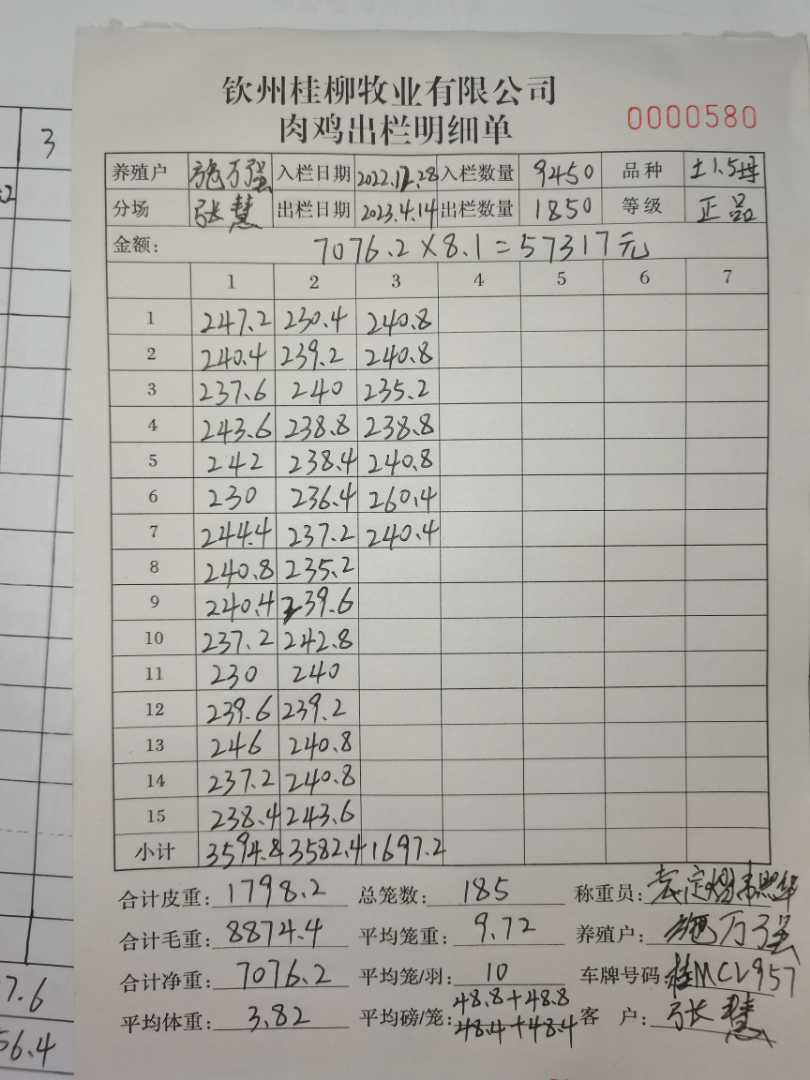 3
钦州桂柳牧业有限公司
肉鸡出栏明细单
0000580
养殖户 施万强 入栏日期 2022.12.28 入栏数量 9450 品种 土1.5母
分场 张慧 出栏日期 2023.4.14 出栏数量 1850 等级 正品
金额: 7076.2×8.1=57317元
1 2 3 4 5 6 7
1 247.2 230.4 240.8
2 240.4 239.2 240.8
3 237.6 240 235.2
4 243.6 238.8 238.8
5 242 238.4 240.8
6 230 236.4 260.4
7 244.4 237.2 240.4
8 240.8 235.2
9 240.4 239.6
10 237.2 242.8
11 230 240
12 239.6 239.2
13 246 240.8
14 237.2 240.8
15 238.4 243.6
小计 3594.8 3582.4 1697.2
合计皮重: 1798.2 总笼数: 185 称重员:
合计毛重: 8874.4 平均笼重: 9.72 养殖户: 施万强
合计净重: 7076.2 平均笼/羽: 10 车牌号码: 桂MCL957
48.8+48.8
平均体重: 3.82 平均磅/笼: 48.4+48.4 客 户: 张慧
7.6
56.4